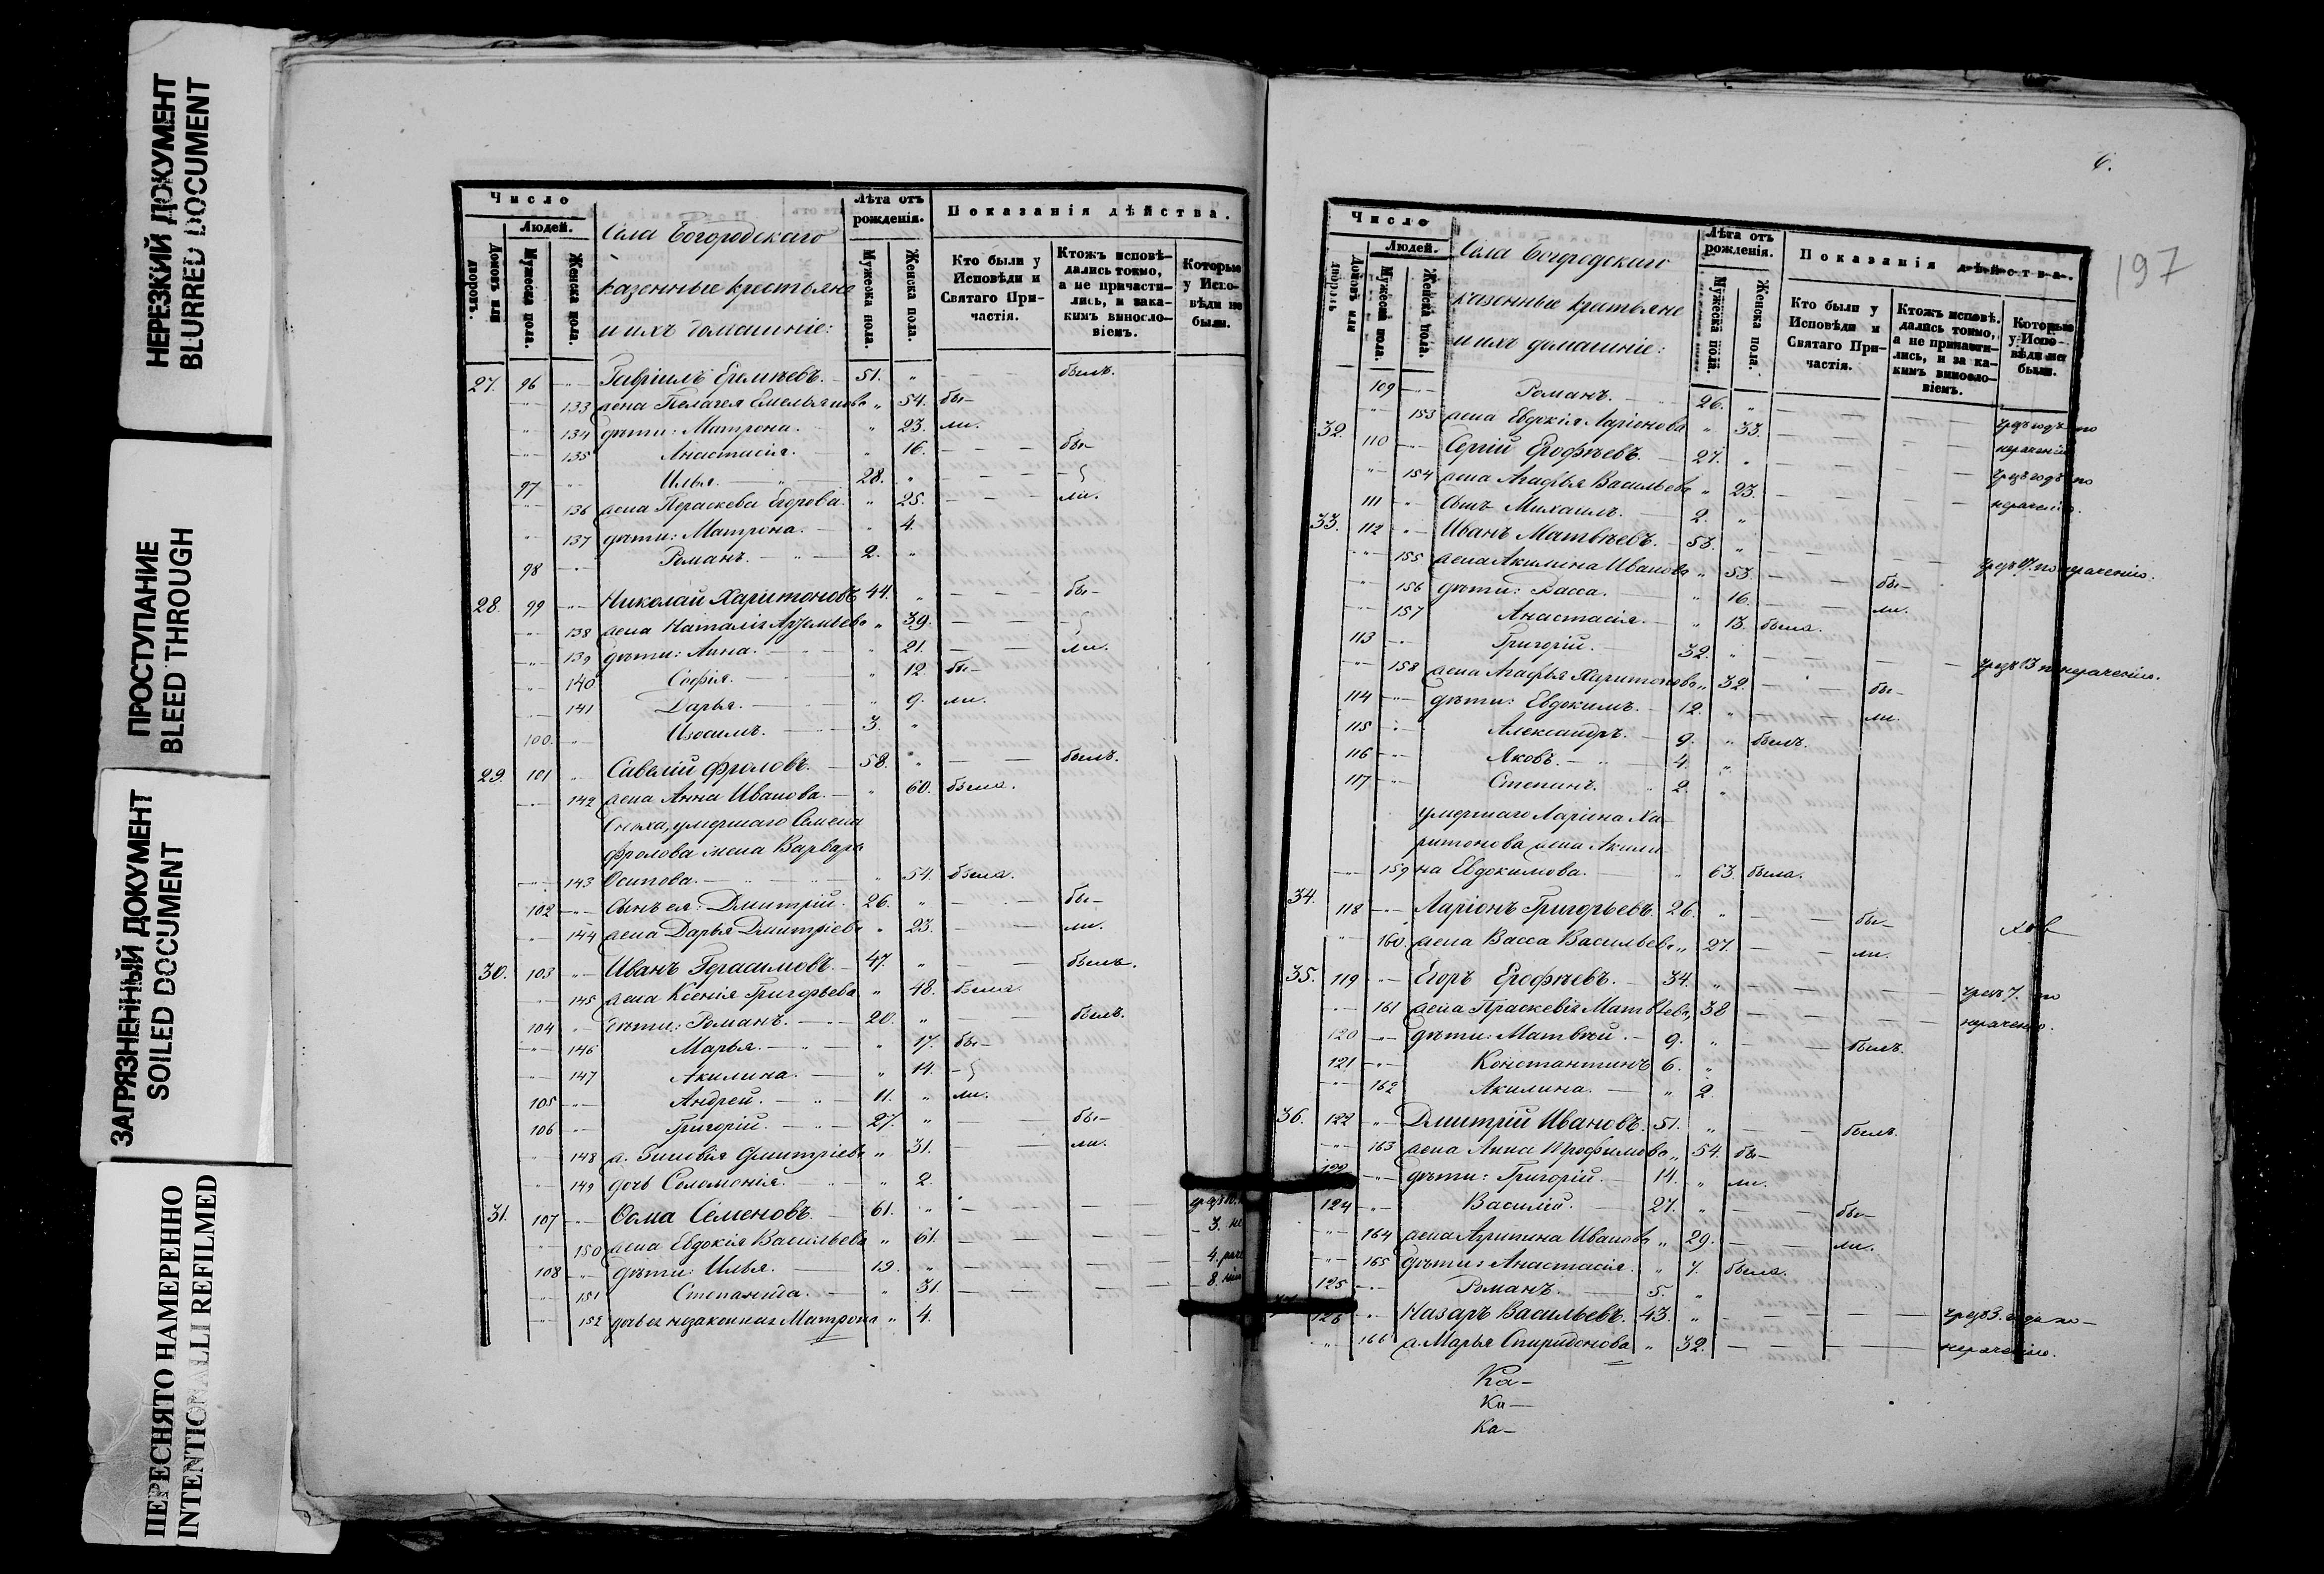 НЕРЕЗКИЙ ДОКУМЕНТ
BLURRED DOCUMENT
ПРОСТУПАНИЕ
BLEED THROUGH
ЗАГРЯЗНЕННЫЙ ДОКУМЕНТ
SOILED DOCUMENT
ПЕРЕСНЯТО НАМЕРЕННО
INTENTIONALLI REFILMED
Число
Людей.
Домовъ или дворовъ.
Мужеска пола.
Женска пола.
Села Богородскаго
казенные крестьяне
и ихъ домашніе:
Лѣта отъ рожденія.
Мужеска пола.
Женска пола.
Показанія дѣйства.
Кто были у Исповѣди и Святаго Причастія.
Ктожъ исповѣдались токмо, а не причастились, и за какимъ винословіемъ.
Которые у Исповѣди не были.
27. 96 Гавріилъ Еремѣевъ. 51. былъ.
133 жена Пелагея Емельянова 54. бы-
134 дѣти: Матрона. 23. ли.
135 Анастасія. 16. бы-
97 Илья. 28.
136 жена Параскева Егорова. 25. ли.
137 дѣти: Матрона. 4.
98 Романъ. 2.
28. 99 Николай Харитоновъ 44. бы-
138 жена Наталія 39.
139 дѣти: Анна. 21. ли.
140 Софія. 12. бы-
141 Дарья. 9. ли.
100. Изосимъ. 3.
29. 101 Савелій Фроловъ. 58. былъ.
142 жена Анна Иванова. 60. была.
Сноха, умершаго Семена
Фролова жена Варвара
143 Осипова. 54. была.
102 Сынъ ея: Дмитрій. 26. бы-
144 жена Дарья Дмитріева 23. ли.
30. 103 Иванъ Герасимовъ. 47. былъ.
145 жена Ксенія Григорьева 48. была.
104 дѣти: Романъ. 20. былъ.
146 Марья. 17. бы-
147 Акилина. 14.
105 Андрей. 11. ли.
106 Григорій. 27. бы-
148 ж. Зиновія Дмитріева 31. ли.
149 дочь Соломонія. 2.
31. 107 Ѳома Семеновъ. 61.
150 жена Евдокія Васильева 61. 3. не
108 дѣти: Илья. 19. 4.
151 Степанида. 31. 8.
152 дочь ея незаконная Матрона 4.
6.
197
Число
Людей.
Домовъ или дворовъ
Мужеска пола.
Женска пола.
Села Богородскаго
казенные крестьяне
и ихъ домашніе:
Лѣта отъ рожденія.
Мужеска пола
Женска пола.
Показанія дѣйства.
Кто были у Исповѣди и Святаго Причастія.
Ктожъ исповѣдались токмо, а не причастились, и за какимъ винословіемъ.
Которые у Исповѣди не были.
109 Романъ. 26.
153 жена Евдокія Ларіонова 33. чрезъ годъ по
32. 110 Сергій Ерофѣевъ. 27. нераченію
154 жена Агафья Васильева 23. чрезъ годъ по
111 Сынъ Михаилъ. 2. нераченію.
33. 112 Иванъ Матвѣевъ. 53.
155 жена Акилина Иванова 53. бы- по нераченію.
156 дѣти: Васса. 16. ли.
157 Анастасія. 13. была.
113 Григорій. 32.
158 жена Агафья Харитонова 32. бы- чрезъ 13 по нераченію.
114 дѣти: Евдокимъ. 12. ли.
115 Александръ. 9. былъ.
116 Яковъ. 4.
117 Степанъ. 2.
умершаго Ларіона Ха-
ритонова жена Акили-
159 на Евдокимова. 63. была.
34. 118 Ларіонъ Григорьевъ. 26. бы-
160. жена Васса Васильева 27. ли.
35. 119 Егоръ Ерофѣевъ. 34. чрезъ 7. по
161 жена Праскевія Матвѣева 38 нераченію.
120 дѣти: Матвѣй. 9. былъ.
121 Константинъ 6.
162 Акилина. 2.
36. 122 Дмитрій Ивановъ. 51. былъ.
163 жена Анна Трофимова 54. бы-
123 дѣти: Григорій. 14. ли.
124 Василій. 27. бы-
164 жена Агрипина Иванова 29. ли.
165 дѣти: Анастасія. 7. была.
125 Романъ. 5.
126 Назаръ Васильевъ. 43. чрезъ 3. года по-
166 ж. Марья Спиридонова 32. нераченію.
Ка-
Ка-
Ка-